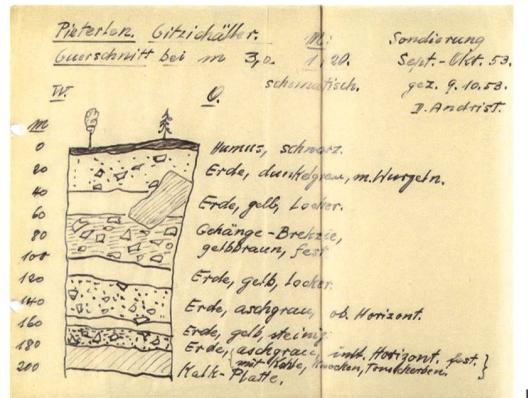 Pieterlen. Gitzichälter.
Querschnitt bei m 3,0.
M:
1:20.
schematisch.
Sondierung
Sept.-Okt. 53.
gez. 9.10.53.
D. Andrist.
W.
O.
m
0 Humus, schwarz.
20 Erde, dunkelgrau, m. Wurzeln.
40
60 Erde, gelb, locker.
80 Gehänge-Brekzie,
gelbbraun, fest
100
120 Erde, gelb, locker.
140 Erde, aschgrau, ob. Horizont.
160 Erde, gelb, steinig.
180 Erde, (aschgrau, unt. Horizont. fest.
mit Kohle, Knochen, Tonscherben.
200 Kalk-Platte.